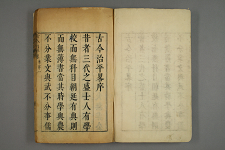 古今治平畧序
昔者三代之盛士人有學
校而無科目朝廷有典則
而無簿書當其時學與農
不分業文與武不分事儒